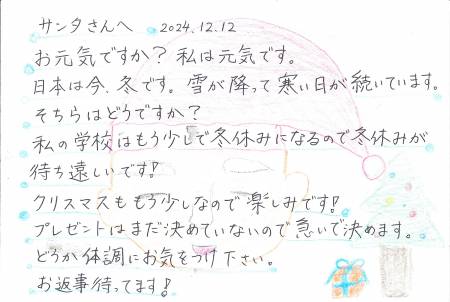 サンタさんへ 2024.12.12
お元気ですか？私は元気です。
日本は今、冬です。雪が降って寒い日が続いています。
そちらはどうですか？
私の学校はもう少しで冬休みになるので冬休みが
待ち遠しいです！
クリスマスももう少しなので楽しみです！
プレゼントはまだ決めていないので急いで決めます。
どうか体調にお気をつけ下さい。
お返事待ってます！